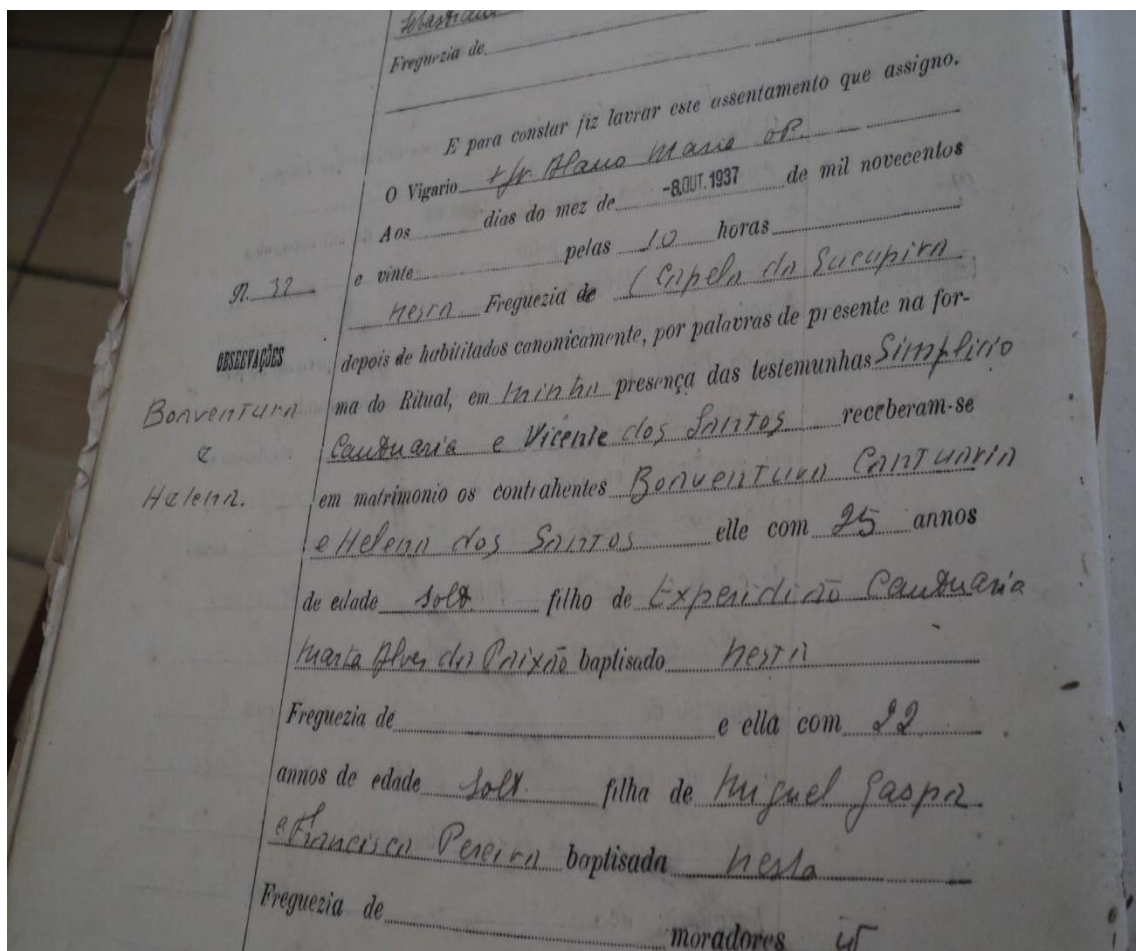 Freguezia de
E para constar fiz lavrar este assentamento que assigno.
O Vigario + fr. Alano Maria OP.
Aos dias do mez de -8.OUT.1937 de mil novecentos
e vinte pelas 10 horas
N. 32
nesta Freguezia de (Capela da Sucupira
OBSERVAÇÕES
Bonventura
e
Helena.
depois de habilitados canonicamente, por palavras de presente na for-
ma do Ritual, em minha presença das testemunhas Simplicio
Cantuaria e Vicente dos Santos receberam-se
em matrimonio os contrahentes Bonventura Cantuaria
e Helena dos Santos elle com 25 annos
de edade solt filho de Experidião Cantuaria
Maria Alves da Paixão baptisado nesta
Freguezia de e ella com 22
annos de edade solt. filha de Miguel Gaspa
e Francisca Pereira baptisada nesta
Freguezia de moradores